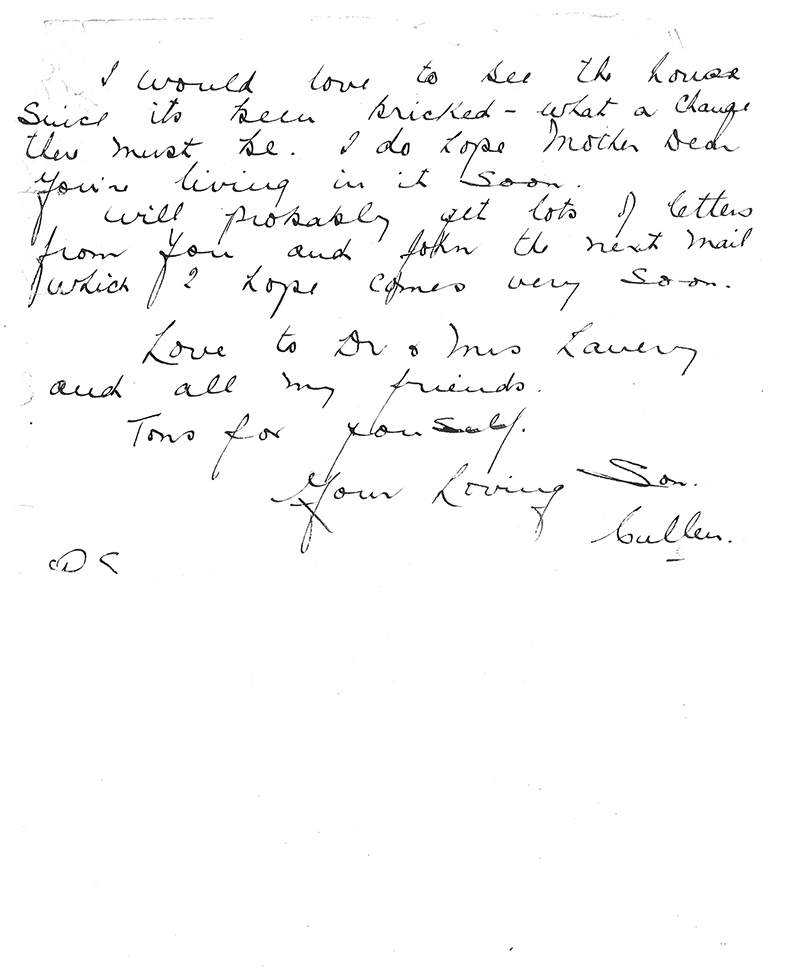 I would love to see the house
Since its been bricked - what a change
ther must be. I do hope Mother Dear
You're living in it soon.
Will probably get lots of letters
from you and John the next mail
which I hope comes very soon.
Love to Dr & Mrs Lavery
and all my friends.
Tons for yourself.
Your Loving Son.
Cullen.